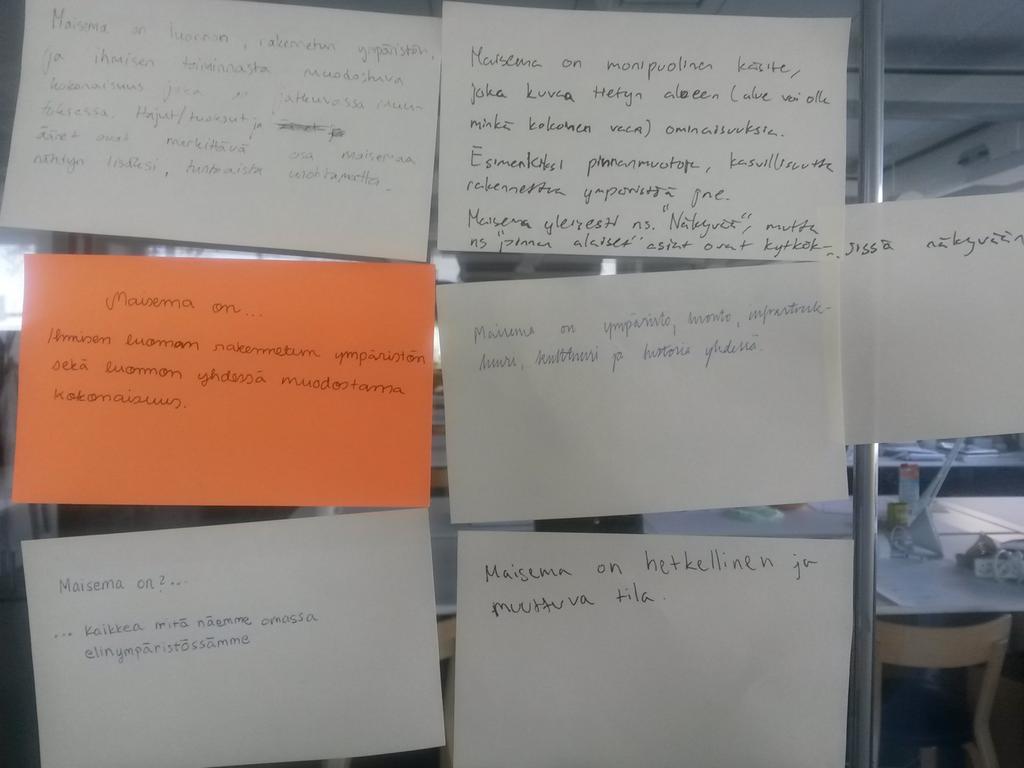 Maisema on luonnon, rakennetun ympäristön,
ja ihmisen toiminnasta muodostuva
kokonaisuus joka on jatkuvassa muu-
toksessa. Hajut/tuoksut ja
äänet ovat merkittävä osa maisemaa
nähtyn lisäksi, tuntoaistia unohtamatta.
Maisema on monipuolinen käsite,
joka kuvaa tietyn alueen (alue voi olla
minkä kokoinen vaan) ominaisuuksia.
Esimerkiksi pinnanmuotoja, kasvillisuutta
rakennettua ympäristöä jne.
Maisema yleisesti ns. "Näkyvää", mutta
ns "pinnan alaiset" asiat ovat kytkök-
sissä näkyvään
Maisema on...
Ihmisen luoman rakennetun ympäristön
sekä luonnon yhdessä muodostama
kokonaisuus.
Maisema on ympäristö, luonto, infrastruk-
tuuri, kulttuuri ja historia yhdessä.
Maisema on?...
... kaikkea mitä näemme omassa
elinympäristössämme
Maisema on hetkellinen ja
muuttuva tila.